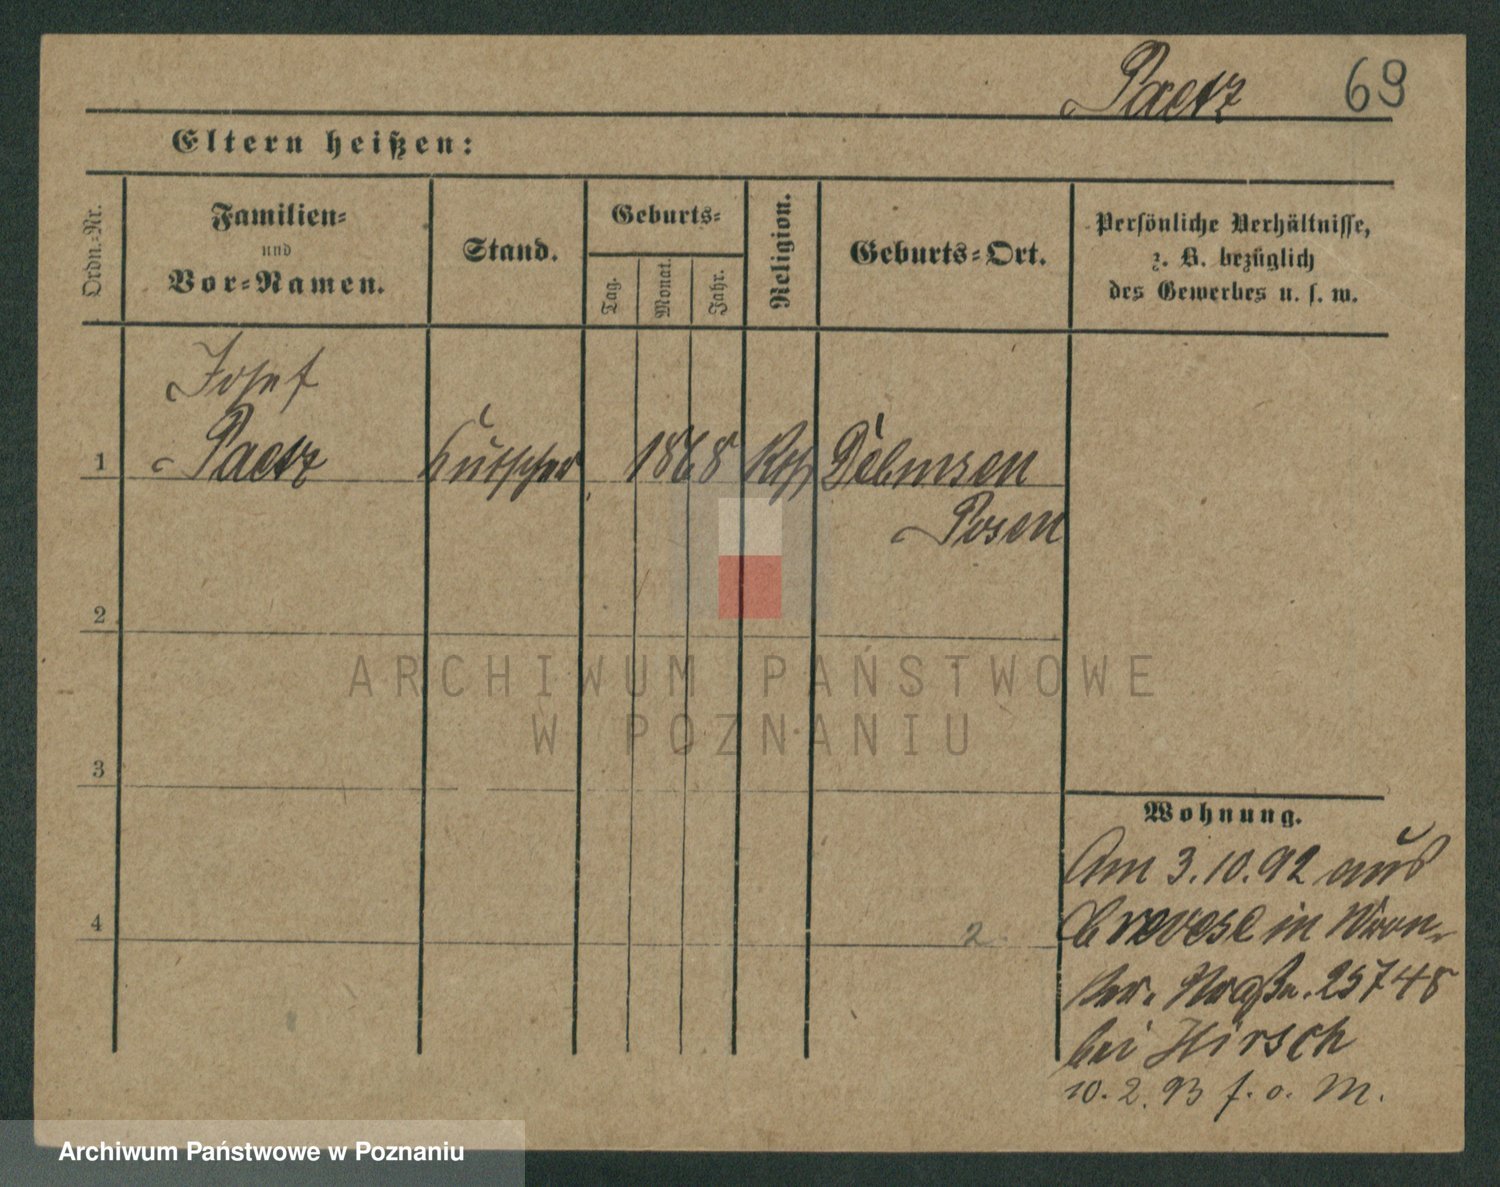 Paetz 69
Eltern heißen:
Ordn.-Nr.
Familien-
und
Vor-Namen.
Stand.
Geburts-
Tag.
Monat.
Jahr.
Religion.
Geburts-Ort.
Persönliche Verhältnisse,
z. B. bezüglich
des Gewerbes u. s. w.
Josef
1 Paetz Kutscher 1868 Kth
Posen
2
3
4
2
Wohnung.
Am 3.10.92 aus
in Wron-
ker. Straße. 25748
bei Hirsch
10.2.93 f. o. M.
ARCHIWUM PAŃSTWOWE
W POZNANIU
Archiwum Państwowe w Poznaniu